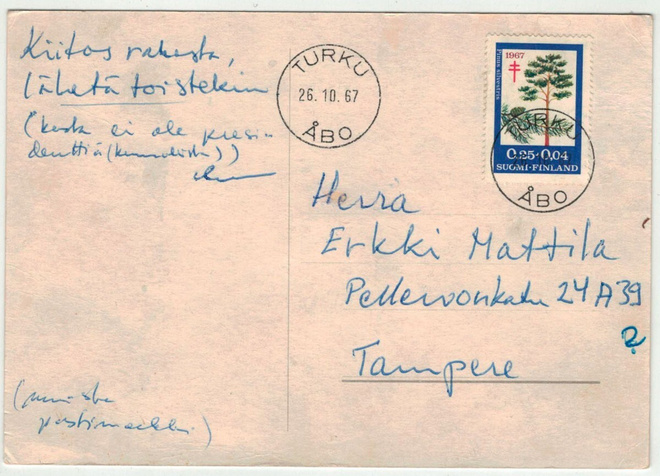 Kiitos rakasta,
lähetä toistekin
(kosta ei ole presi-
denttiä
(muista
postimerkki)
TURKU
26.10.67
ÅBO
1967
Pinus silvestris
0,25+0,04
SUOMI-FINLAND
TURKU
ÅBO
Herra
Erkki Mattila
Pellervonkatu 24 A 39
?
Tampere